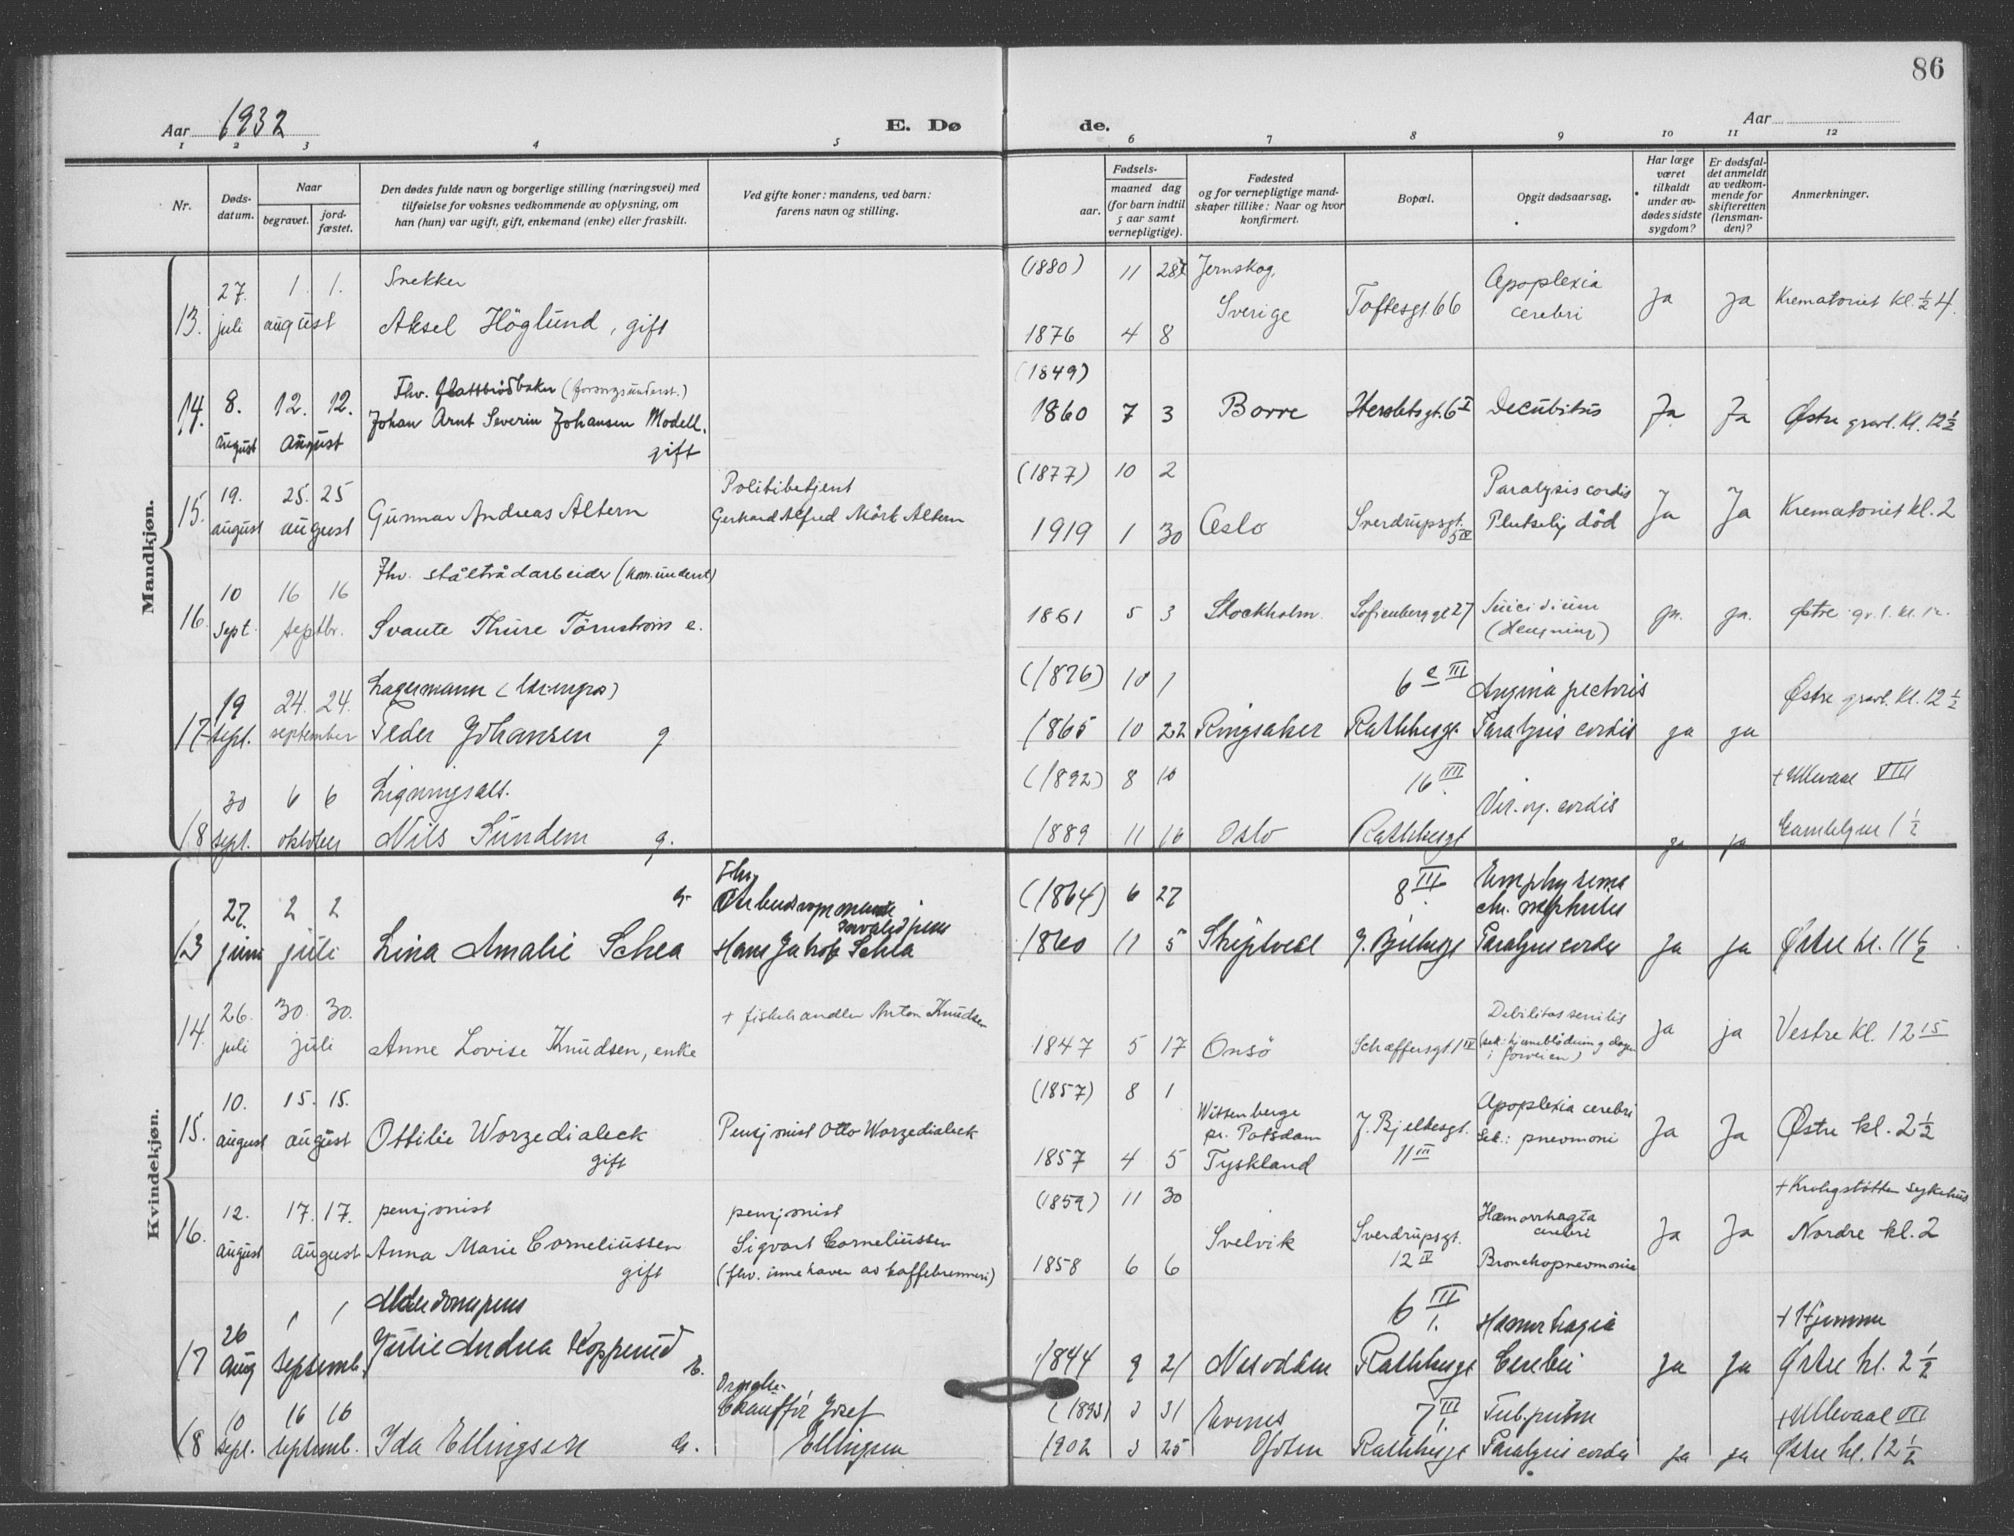 86
Aar 1932
E. Dø de.
Aar
1 2 3 4 5 6 7 8 9 10 11 12
Nr.
Døds-
datum.
Naar
begravet.
jord-
fæstet.
Den dødes fulde navn og borgerlige stilling (næringsvei) med
tilføielse for voksnes vedkommende av oplysning, om
han (hun) var ugift, gift, enkemand (enke) eller fraskilt.
Ved gifte koner: mandens, ved barn:
farens navn og stilling.
Fødsels-
aar.
maaned dag
(for barn indtil
5 aar samt
vernepligtige).
Fødested
og for vernepligtige mand-
skaper tillike: Naar og hvor
konfirmert.
Bopæl.
Opgit dødsaarsag.
Har læge
været
tilkaldt
under av-
dødes sidste
sygdom?
Er dødsfal-
det anmeldt
av vedkom-
mende for
skifteretten
(lensman-
den)?
Anmerkninger.
Mandkjøn.
13. 27. juli 1. 1. august
Snekker
Aksel Höglund, gift
(1880) 11 28
1876 4 8
Jernskog,
Sverige
Toftesgt. 66
Apoplexia
cerebri
Ja Ja
Krematoriet kl. ½ 4.
14. 8. august 12. 12. august
Fhv. flattbrødbaker (forsorgsunderst.)
Johan Arnt Severin Johansen Modell.
gift
(1849)
1860 7 3
Borre
Herslebsgt. 6 I
Decubitus
Ja Ja
Østre gravl. kl. 12 ½
15. 19. august 25. 25 august
Gunnar Andreas Altern
Politibetjent
Gerhard Alfred Mörk Altern
(1877) 10 2
1919 1 30
Oslo
Sverdrupsgt.
5 IV
Paralysis cordis
Plutselig død
Ja Ja
Krematoriet kl. 2
16. 10 sept. 16 16 septbr.
Fhv. ståltrådarbeider (kom.underst)
Svante Thure Törnström e.
1861 5 3
Stockholm.
Sofienberggt 27
Suicidium
(Hengning)
ja. ja.
Østre gr.l. kl.
17 19 sept. 24. 24. september
Lagermann
Peder Johansen g
(1876) 10 1
1865 10 22
Ringsaker
6 c III
Rathkesgt.
Angina pectoris
Paralysis cordis
ja ja
Østre gravl. kl. 12 ½
18 30 sept. 6 6 oktober
Ligningsass.
Nils Sundem g.
(1892) 8 10
1889 11 16
Oslo
16 IIII
Rathkesgt
Vit. org. cordis
ja ja
+ Ullevaal VIII
Gamlebyen 1 ½
Kvindekjøn.
13 27. juni 2 2 juli
Lina Amalie Schea g.
Fhv.
Hans Jakob Schea
(1864) 6 27
1860 11 5
Skiptvedt
8 III.
J. Bjelkesgt
Emphysema
chr. nephritis
Paralysis cordis
Ja ja
Østre kl. 11 ½
14. 26. juli 30. 30. juli
Anne Lovise Knudsen, enke
+ fiskehandler Anton Knudsen
1847 5 17
Onsö
Schæffersgt. 1 IV
Debilitas senilis
(sek: hjerneblødning dagen
i forveien)
Ja ja
Vestre kl. 12 15
15. 10. august 15. 15. august
Ottilie Worzedialeck
gift
Pensjonist Otto Worzedialeck
(1857) 8 1
1857 4 5
Wittenberge
pr. Potsdam
Tyskland
J. Bjelkesgt.
11 III
Apoplexia cerebri
Sek.: pneumoni
Ja Ja
Østre kl. 2 ½
16. 12. august 17. 17. august
pensjonist
Anna Marie Corneliussen
gift
pensjonist
Sigvart Corneliussen
(fhv. innehaver av kaffebrenneri)
(1859) 11 30
1858 6 6
Svelvik
Sverdrupsgt.
12 IV
Hæmorrhagia
cerebri
Bronchopneumonia
Ja Ja
+ Krohgstøtten sykehus
Nordre kl. 2
17 26 Aug 1 1 septemb.
Alderdomspens
Julie Andrea Kopperud e.
1844 9 21
Nesodden
6 III
1.
Rathkesgt
Hæmorhagia
Cerebri
Ja Ja
+ Hjemme
Østre kl. 2 ½
18 10 sept. 16 16 septemb.
Ida Ellingsen g.
Chauffør Josef
Ellingsen
(1893) 3 31
1902 3 25
Evenes
Ofoten
7 III
1.
Rathkesgt
Tub. pulm
Paralysis cordis
ja ja
+ Ullevaal VII
Østre kl. 12 ½